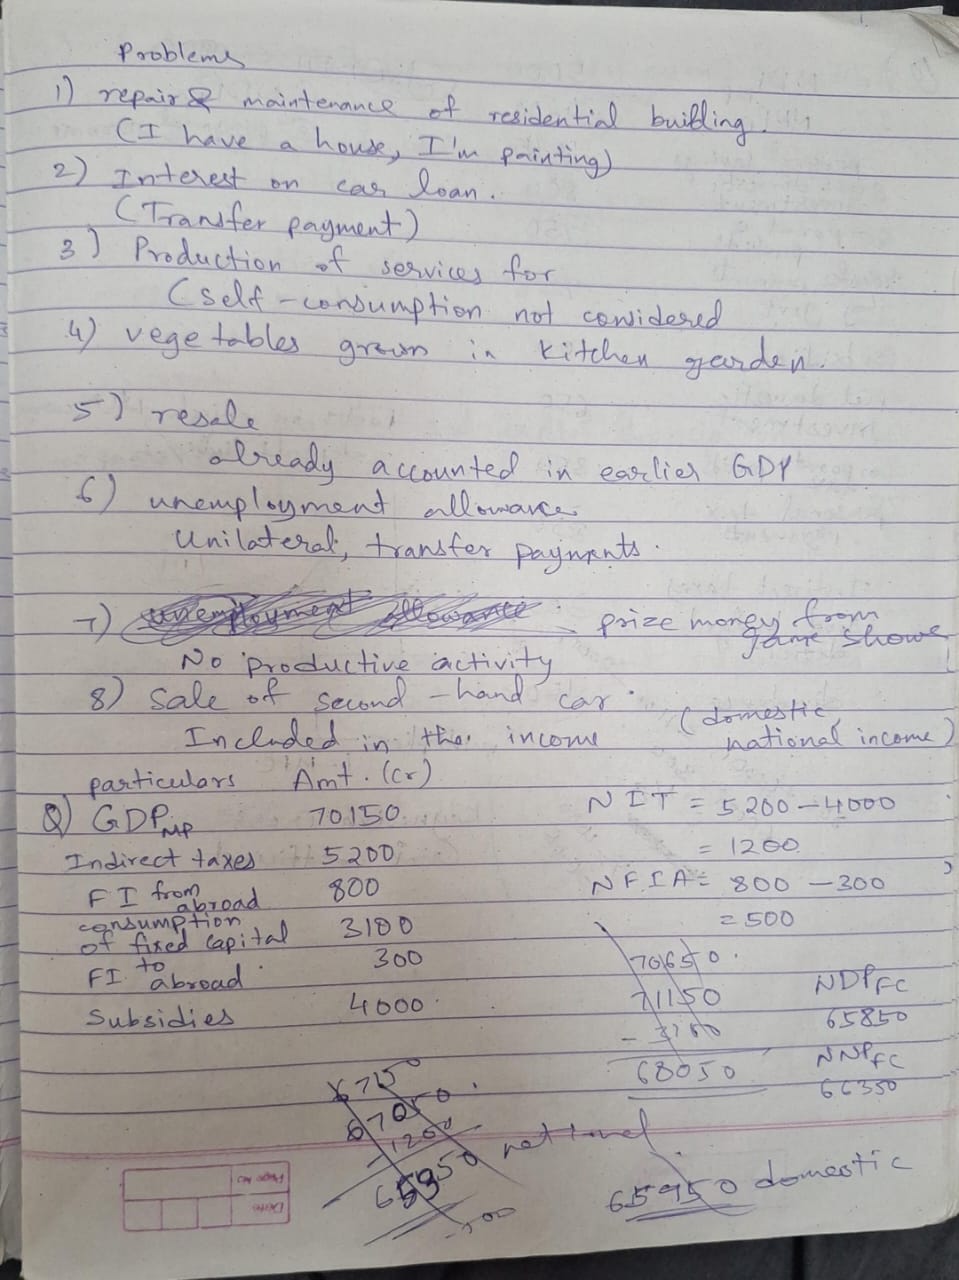 Problems
1) repair & maintenance of residential building.
(I have a house, I'm painting)
2) Interest on car loan.
(Transfer payment)
3) Production of services for
(self-consumption not considered
4) vegetables grown in kitchen garden.
5) resale
already accounted in earlier GDP
6) unemployment allowance
Unilateral, transfer payments.
7) unemployment allowance prize money from
game shows
No productive activity
8) Sale of second-hand car.
Included in the income (domestic,
national income)
particulars Amt. (cr)
Q) GDPMP 70150
NIT = 5200-4000
Indirect taxes 5200
= 1200
FI from abroad 800
NFIA = 800 - 300
consumption
of fixed capital 3100
= 500
FI to abroad 300
70650.
Subsidies 4000
71150
NDPFC
65850
68050
NNPFC
66350
67050
1200
65950 domestic
Page No
Date